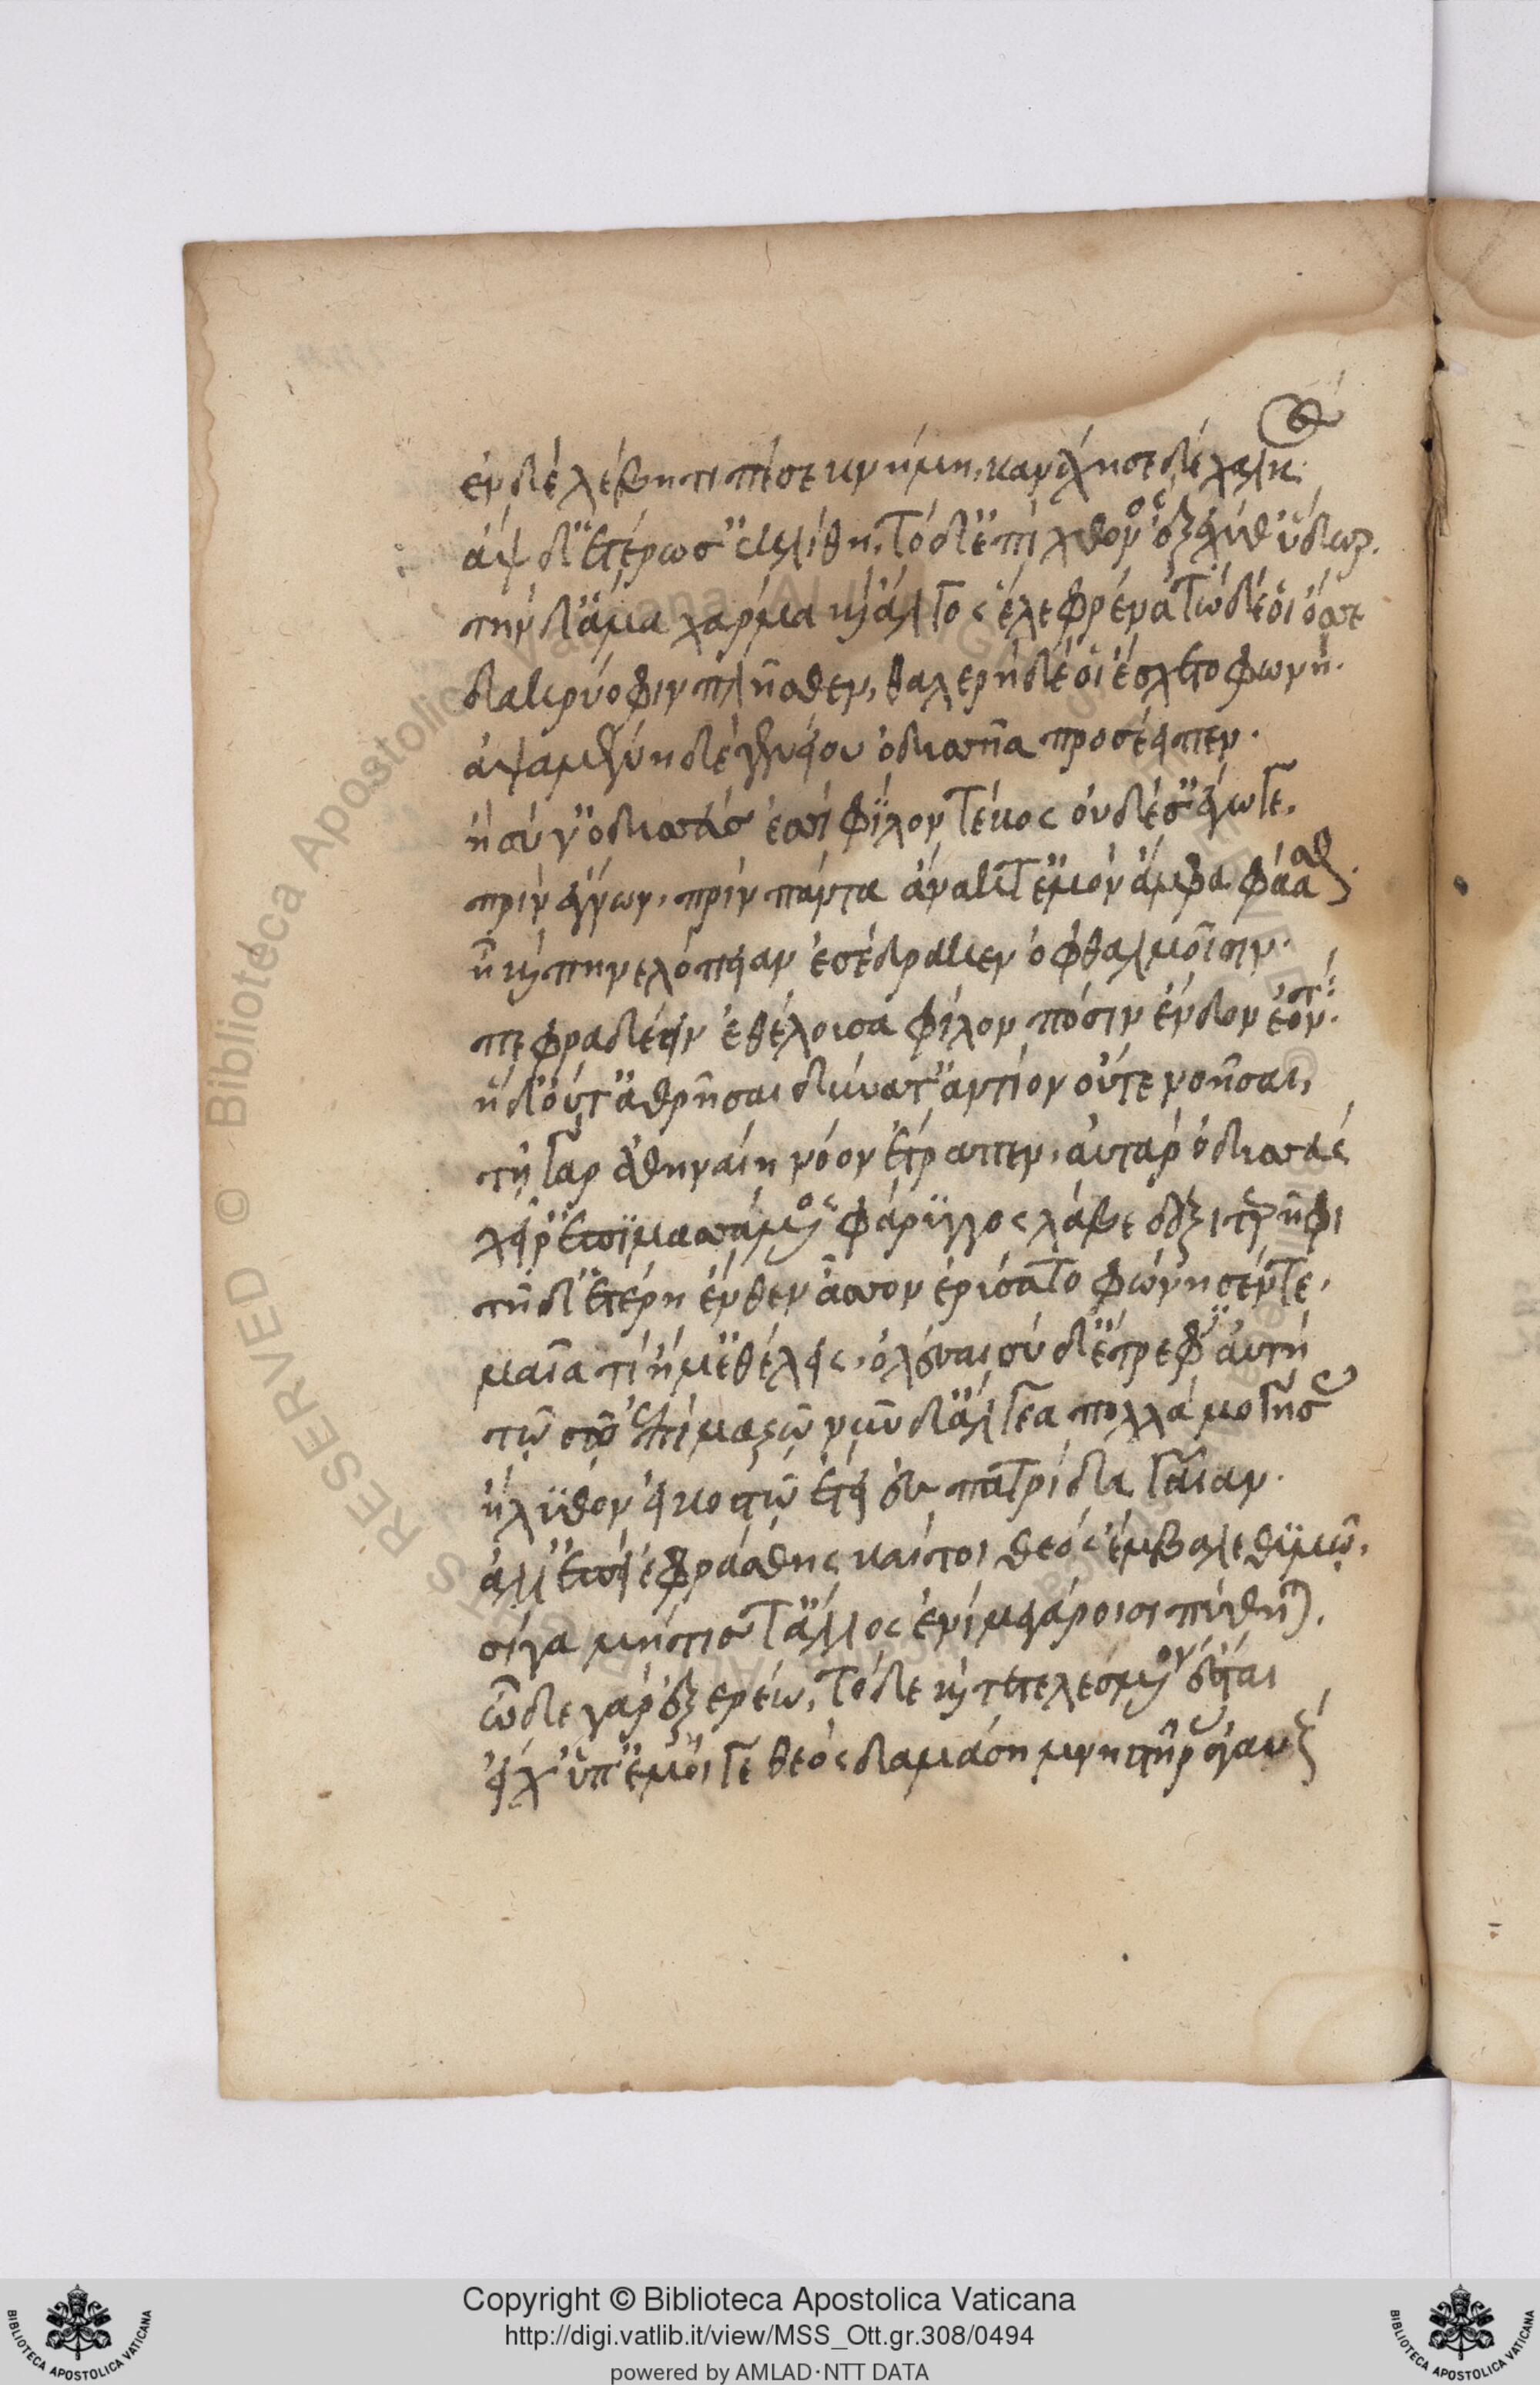 ἐν δὲ λέβητι πέσε κνήμη, κανάχησε δὲ χαλκός·
ἂψ δ' ἑτέρωσ' ἐκλίθη, τὸ δ' ἐπὶ χθονὸς ἐξέχυθ' ὕδωρ.
τὴν δ' ἅμα χάρμα καὶ ἄλγος ἕλε φρένα τὼ δέ οἱ ὄσσε
δακρυόφιν πλῆσθεν, θαλερὴ δέ οἱ ἔσχετο φωνή.
ἁψαμένη δὲ γενείου ὀδυσσῆα προσέειπεν.
ἦ σύ γ' ὀδυσσεύς ἐσσι φίλον τέκος οὐδέ σ' ἔγωγε.
πρὶν ἔγνων, πρὶν πάντα ἄνακτ' ἐμὸν ἀμφαφάασθαι.
ἦ καὶ πηνελόπειαν ἐσέδρακεν ὀφθαλμοῖσιν.
πεφραδέειν ἐθέλουσα φίλον πόσιν ἔνδον ἐόντα.
ἡ δ' οὔτ' ἀθρῆσαι δύνατ' ἀντίον οὔτε νοῆσαι,
τῇ γὰρ ἀθηναίη νόον ἔτραπεν, αὐτὰρ ὀδυσσεὺς
χεῖρ' ἐπιμασσάμενος φάρυγγος λάβε δεξιτερῆφι
τῇ δ' ἑτέρῃ ἕθεν ἆσσον ἐρύσατο φώνησέν τε.
μαῖα τίη μ' ἐθέλεις ὀλέσαι, σὺ δέ μ' ἔτρεφες αὐτὴ
τῷ σῷ ἐπὶ μαζῷ νῦν δ' ἄλγεα πολλὰ μογήσας
ἤλυθον εἰκοστῷ ἔτει ἐς πατρίδα γαῖαν.
ἀλλ' ἐπεὶ ἐφράσθης καί τοι θεὸς ἔμβαλε θυμῷ.
σίγα μή τις τ' ἄλλος ἐνὶ μεγάροισι πύθηται.
ὧδε γὰρ ἐξερέω, τὸ δὲ καὶ τετελεσμένον ἔσται
εἴ χ' ὑπ' ἐμοί γε θεὸς δαμάσῃ μνηστῆρας ἀγαυούς
Copyright © Biblioteca Apostolica Vaticana
http://digi.vatlib.it/view/MSS_Ott.gr.308/0494
powered by AMLAD·NTT DATA